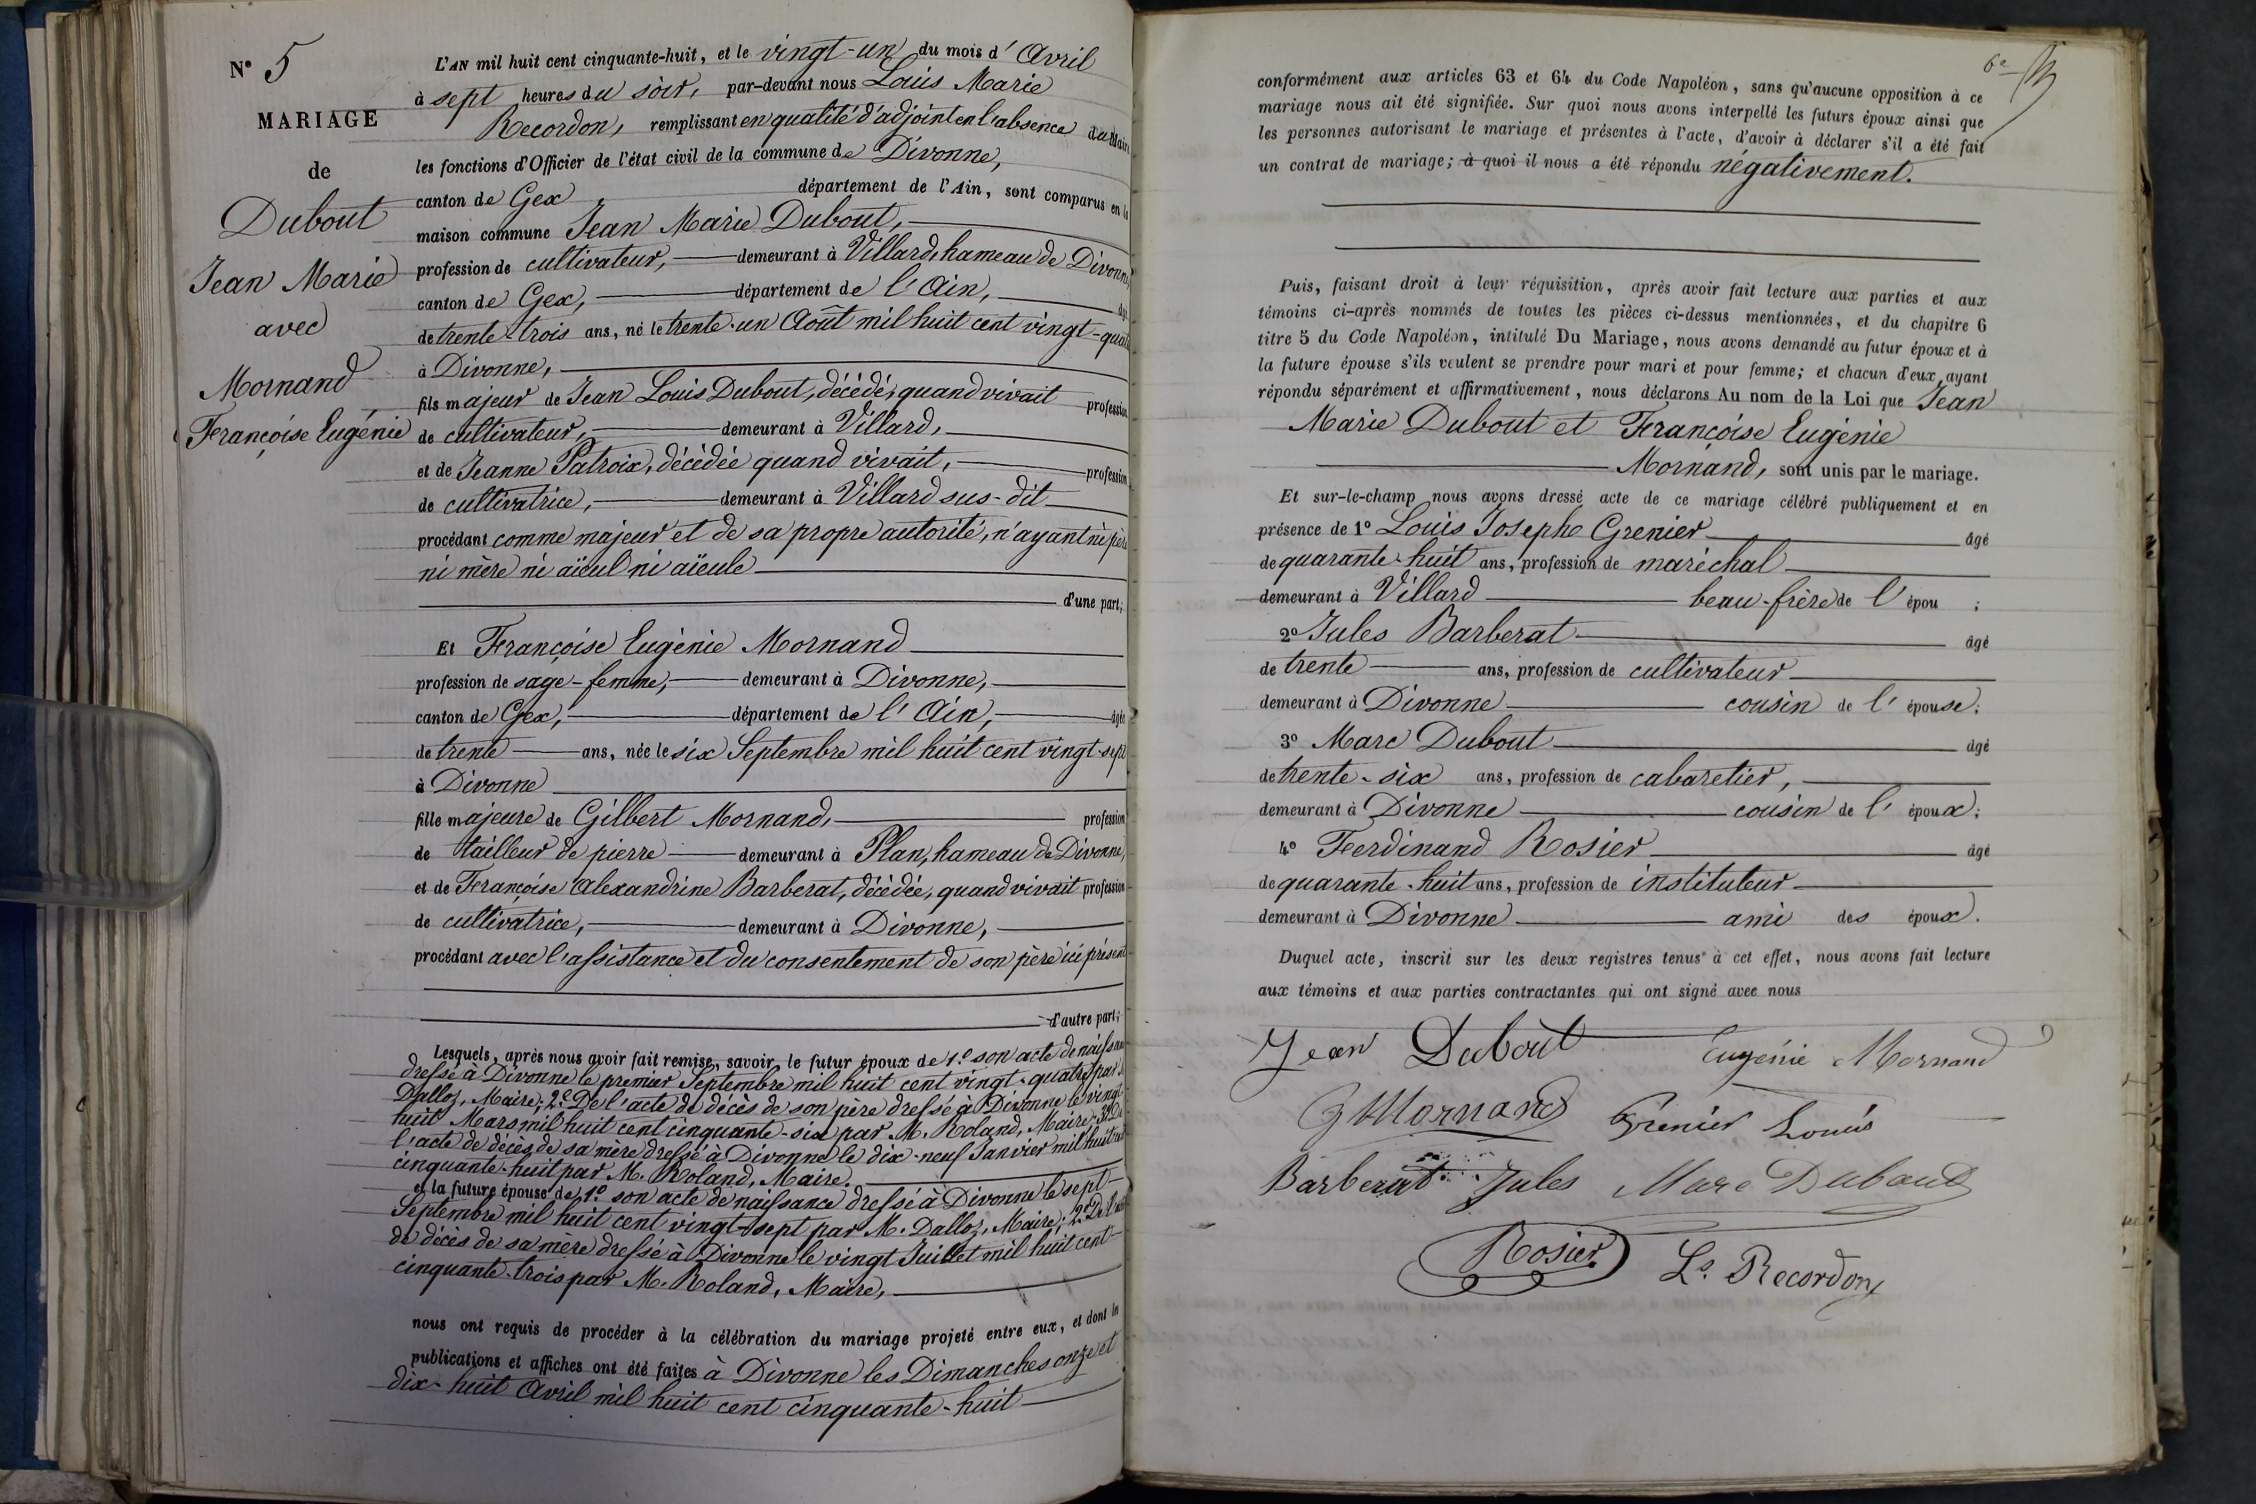 N° 5
MARIAGE
de
Dubout
Jean Marie
avec
Mornand
Françoise Eugénie
L'AN mil huit cent cinquante-huit, et le vingt-un du mois d'Avril
à sept heures du soir, par-devant nous Louis Marie
Recordon, remplissant en qualité d'adjoint en l'absence du Maire
les fonctions d'Officier de l'état civil de la commune de Divonne,
canton de Gex département de l'Ain, sont comparus en la
maison commune Jean Marie Dubout,
profession de cultivateur, demeurant à Villard, hameau de Divonne,
canton de Gex, département de l'Ain, âgé
de trente-trois ans, né le trente-un Août mil huit cent vingt-quatre
à Divonne,
fils majeur de Jean Louis Dubout, décédé, quand vivait profession
de cultivateur, demeurant à Villard,
et de Jeanne Patroix, décédée quand vivait, profession
de cultivatrice, demeurant à Villard sus-dit
procédant comme majeur et de sa propre autorité, n'ayant ni père
ni mère ni aïeul ni aïeule
d'une part;
Et Françoise Eugénie Mornand
profession de sage-femme, demeurant à Divonne,
canton de Gex, département de l'Ain, âgée
de trente ans, née le six Septembre mil huit cent vingt-sept
à Divonne
fille majeure de Gilbert Mornand, profession
de tailleur de pierre demeurant à Plan, hameau de Divonne,
et de Françoise Alexandrine Barberat, décédée, quand vivait profession
de cultivatrice, demeurant à Divonne,
procédant avec l'assistance et du consentement de son père ici présent
d'autre part;
Lesquels, après nous avoir fait remise, savoir, le futur époux de 1.° son acte de naissance
dressé à Divonne le premier Septembre mil huit cent vingt-quatre par
Dalloz, Maire; 2.° De l'acte de décès de son père dressé à Divonne le vingt-
huit Mars mil huit cent cinquante-six par M. Roland, Maire; 3.° De
l'acte de décès de sa mère dressé à Divonne le dix-neuf Janvier mil huit cent
cinquante-huit par M. Roland, Maire.
et la future épouse de 1.° son acte de naissance dressé à Divonne le sept
Septembre mil huit cent vingt-sept par M. Dalloz, Maire; 2.° De l'acte
de décès de sa mère dressé à Divonne le vingt Juillet mil huit cent
cinquante-trois par M. Roland, Maire,
nous ont requis de procéder à la célébration du mariage projeté entre eux, et dont les
publications et affiches ont été faites à Divonne les Dimanches onze et
dix-huit Avril mil huit cent cinquante-huit
6e
conformément aux articles 63 et 64 du Code Napoléon, sans qu'aucune opposition à ce
mariage nous ait été signifiée. Sur quoi nous avons interpellé les futurs époux ainsi que
les personnes autorisant le mariage et présentes à l'acte, d'avoir à déclarer s'il a été fait
un contrat de mariage; à quoi il nous a été répondu négativement.
Puis, faisant droit à leur réquisition, après avoir fait lecture aux parties et aux
témoins ci-après nommés de toutes les pièces ci-dessus mentionnées, et du chapitre 6
titre 5 du Code Napoléon, intitulé Du Mariage, nous avons demandé au futur époux et à
la future épouse s'ils veulent se prendre pour mari et pour femme; et chacun d'eux ayant
répondu séparément et affirmativement, nous déclarons Au nom de la Loi que Jean
Marie Dubout et Françoise Eugénie
Mornand, sont unis par le mariage.
Et sur-le-champ nous avons dressé acte de ce mariage célébré publiquement et en
présence de 1° Louis Joseph Grenier âgé
de quarante-huit ans, profession de maréchal
demeurant à Villard beau-frère de l'épou ;
2° Jules Barberat âgé
de trente ans, profession de cultivateur
demeurant à Divonne cousin de l'épouse;
3° Marc Dubout âgé
de trente-six ans, profession de cabaretier,
demeurant à Divonne cousin de l'époux;
4° Ferdinand Rosier âgé
de quarante-huit ans, profession de instituteur
demeurant à Divonne ami des époux.
Duquel acte, inscrit sur les deux registres tenus à cet effet, nous avons fait lecture
aux témoins et aux parties contractantes qui ont signé avec nous
Jean Dubout Eugénie Mornand
G Mornand Grenier Louis
Barberat Jules Marc Dubout
Rosier Ls Recordon